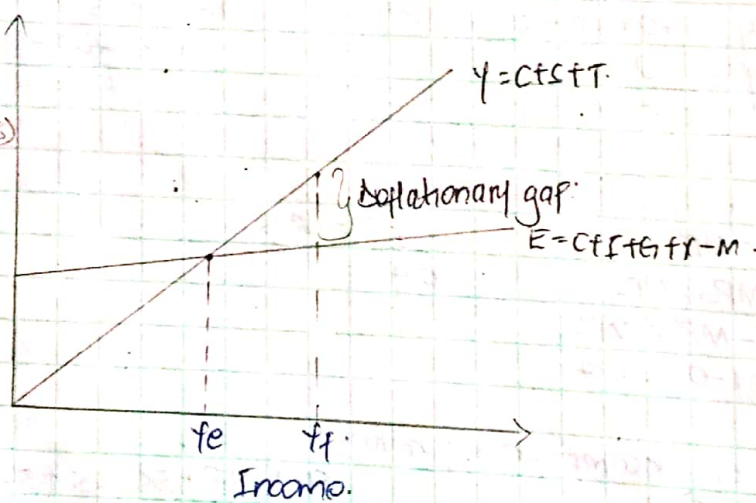 Y=C+S+T.
Deflationary gap.
E=C+I+G+X-M.
Ye
Yf.
Income.